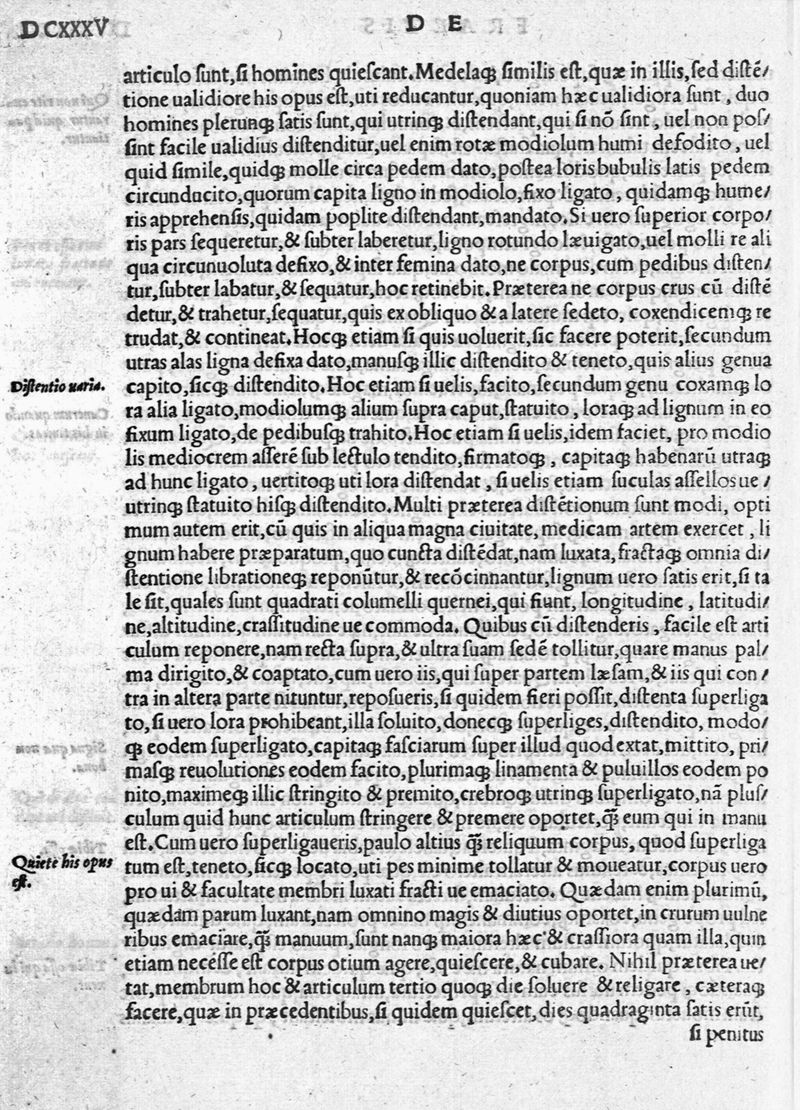 DCXXXV
D E
articulo ſunt,ſi homines quieſcant.Medelaqꝫ ſimilis eſt,quæ in illis,ſed diſtẽ/
tione ualidiore his opus eſt,uti reducantur,quoniam hæc ualidiora ſunt, duo
homines plerunqꝫ ſatis ſunt,qui utrinqꝫ diſtendant,qui ſi nõ ſint, uel non poſ/
ſint facile ualidius diſtenditur,uel enim rotæ modiolum humi defodito, uel
quid ſimile,quidqꝫ molle circa pedem dato,poſtea loris bubulis latis pedem
circunducito,quorum capita ligno in modiolo,fixo ligato, quidamqꝫ hume/
ris apprehenſis,quidam poplite diſtendant,mandato.Si uero ſuperior corpo/
ris pars ſequeretur,& ſubter laberetur,ligno rotundo læuigato,uel molli re ali
qua circunuoluta defixo,& inter femina dato,ne corpus,cum pedibus diſten/
tur,ſubter labatur,& ſequatur,hoc retinebit.Præterea ne corpus crus cũ diſtẽ
detur,& trahetur,ſequatur,quis ex obliquo & a latere ſedeto, coxendicemqꝫ re
trudat,& contineat.Hocqꝫ etiam ſi quis uoluerit,ſic facere poterit,ſecundum
utras alas ligna defixa dato,manuſqꝫ illic diſtendito & teneto,quis alius genua
Diſtentio uaria.
capito,ſicqꝫ diſtendito.Hoc etiam ſi uelis,facito,ſecundum genu coxamqꝫ lo
ra alia ligato,modiolumqꝫ alium ſupra caput,ſtatuito, loraqꝫ ad lignum in eo
fixum ligato,de pedibuſqꝫ trahito.Hoc etiam ſi uelis,idem faciet, pro modio
lis mediocrem aſſerẽ ſub lectulo tendito,firmatoqꝫ, capitaqꝫ habenarũ utraqꝫ
ad hunc ligato, uertitoqꝫ uti lora diſtendat, ſi uelis etiam ſuculas aſſellos ue/
utrinqꝫ ſtatuito hiſqꝫ diſtendito.Multi præterea diſtẽtionum ſunt modi, opti
mum autem erit,cũ quis in aliqua magna ciuitate, medicam artem exercet, li
gnum habere præparatum,quo cuncta diſtẽdat,nam luxata,fractaqꝫ omnia di/
ſtentione librationeqꝫ reponũtur,& recõcinnantur,lignum uero ſatis erit,ſi ta
le ſit,quales ſunt quadrati columelli quernei,qui fiunt, longitudine, latitudi/
ne,altitudine,craſſitudine ue commoda. Quibus cũ diſtenderis, facile eſt arti
culum reponere,nam recta ſupra,& ultra ſuam ſedẽ tollitur,quare manus pal/
ma dirigito,& coaptato,cum uero iis,qui ſuper partem læſam,& iis qui con/
tra in altera parte nituntur,repoſueris,ſi quidem fieri poſſit,diſtenta ſuperliga
to,ſi uero lora prohibeant,illa ſoluito,donecqꝫ ſuperliges,diſtendito, modo/
qꝫ eodem ſuperligato,capitaqꝫ faſciarum ſuper illud quod extat,mittito, pri/
maſqꝫ reuolutiones eodem facito,plurimaqꝫ linamenta & puluillos eodem po
nito,maximeqꝫ illic ſtringito & premito,crebroqꝫ utrinqꝫ ſuperligato,nã pluſ/
culum quid hunc articulum ſtringere & premere oportet,q̃ꝫ eum qui in manu
eſt.Cum uero ſuperligaueris,paulo altius q̃ꝫ reliquum corpus, quod ſuperliga
Quiete his opus
eſt.
tum eſt,teneto,ſicqꝫ locato,uti pes minime tollatur & moueatur,corpus uero
pro ui & facultate membri luxati fracti ue emaciato. Quædam enim plurimũ,
quædam parum luxant,nam omnino magis & diutius oportet,in crurum uulne
ribus emaciare,q̃ꝫ manuum,ſunt nanqꝫ maiora hæc & craſſiora quam illa,quin
etiam neceſſe eſt corpus otium agere,quieſcere,& cubare. Nihil præterea ue/
tat,membrum hoc & articulum tertio quoqꝫ die ſoluere & religare, cæteraqꝫ
facere,quæ in præcedentibus,ſi quidem quieſcet,dies quadraginta ſatis erũt,
ſi penitus